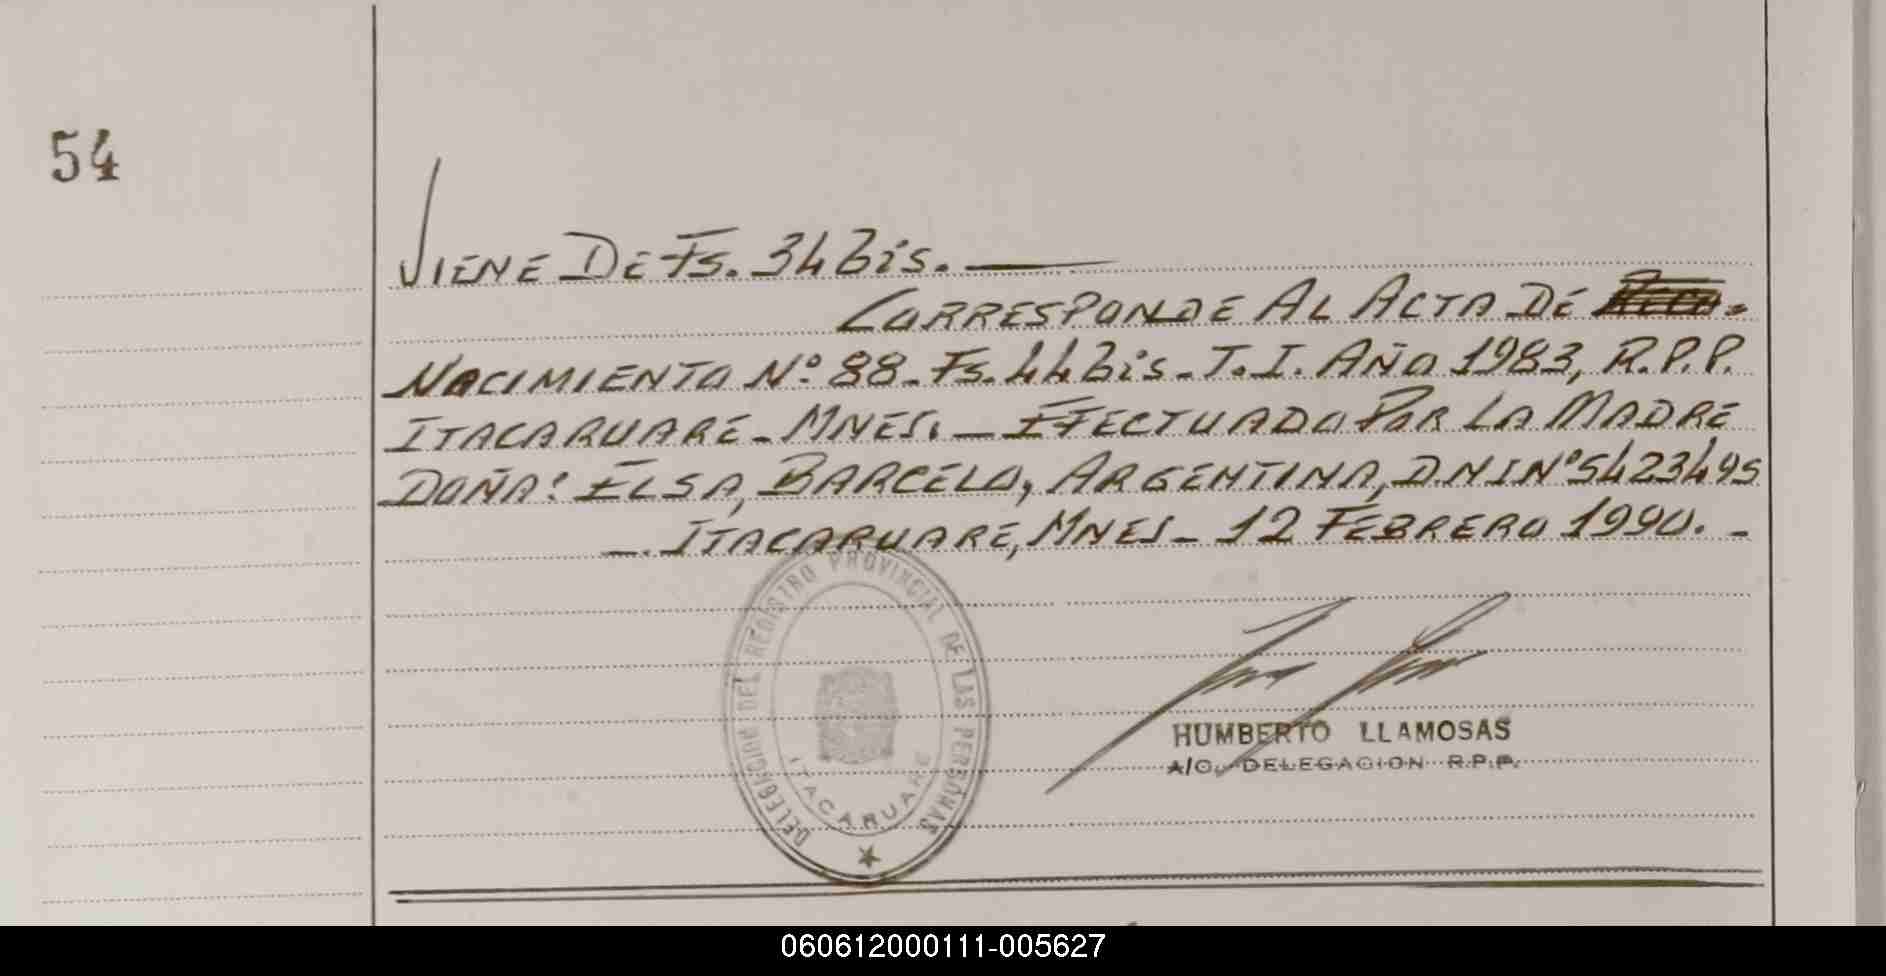 54
VIENE DE Fs. 34 bis. —
CORRESPONDE AL ACTA DE
NACIMIENTO Nº 88 - Fs. 44 bis - T. I. AÑO 1983, R.P.P.
ITACARUARE - MNES. — EFECTUADO POR LA MADRE
DOÑA: ELSA, BARCELO, ARGENTINA, D.N I Nº 5423495
—. ITACARUARE, MNES - 12 FEBRERO 1990. -
DELEGACION DEL REGISTRO PROVINCIAL DE LAS PERSONAS
ITACARUARE
HUMBERTO LLAMOSAS
A/C. DELEGACION R.P.P.
060612000111-005627